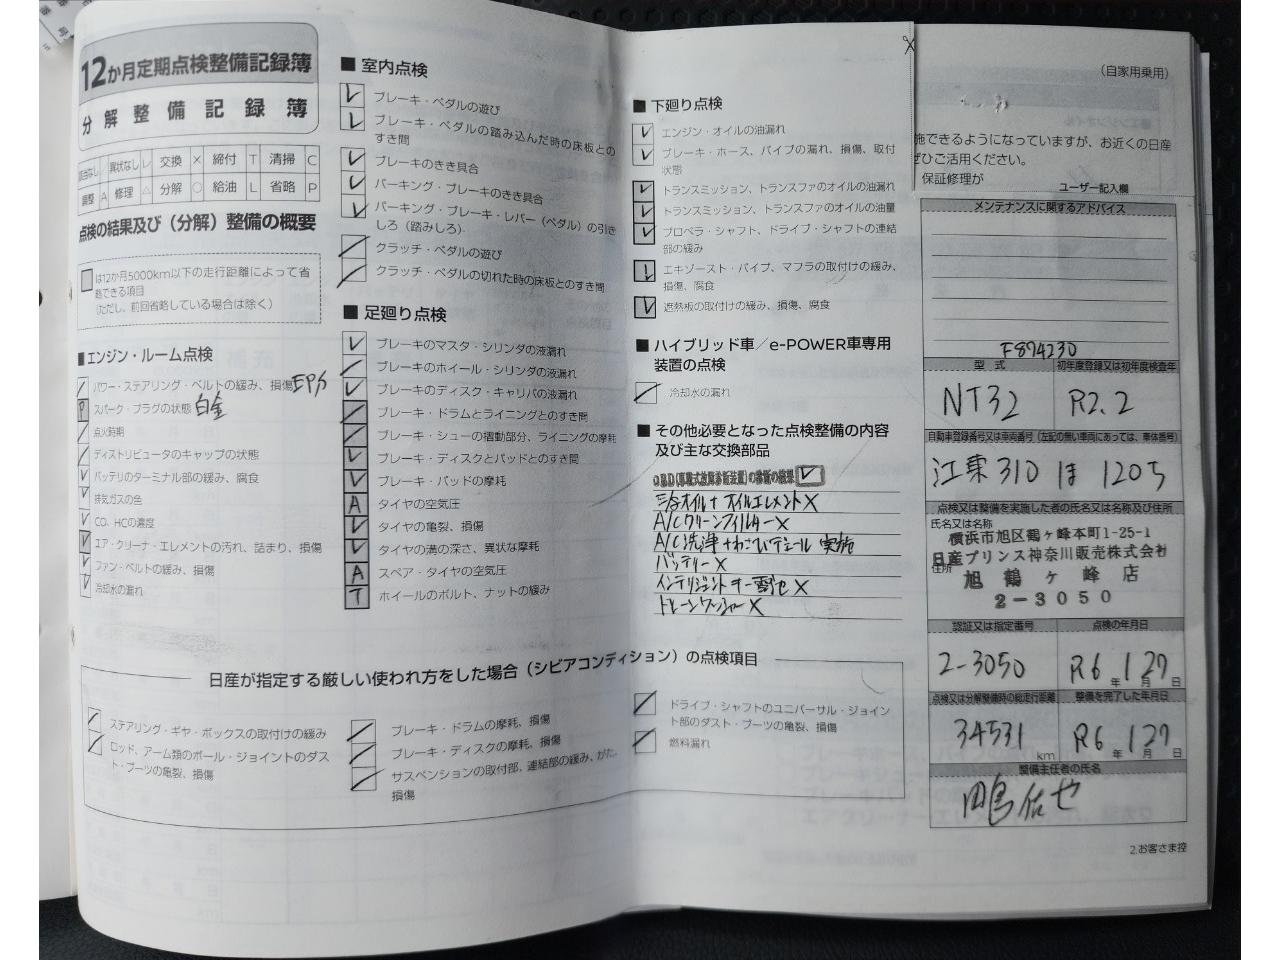 12か月定期点検整備記録簿
分解整備記録簿
該当なし / 異状なし レ 交換 × 締付 T 清掃 C
調整 A 修理 △ 分解 ○ 給油 L 省略 P
点検の結果及び（分解）整備の概要
は12か月5000km以下の走行距離によって省
略できる項目
（ただし、前回省略している場合は除く）
■エンジン・ルーム点検
パワー・ステアリング・ベルトの緩み、損傷 EPS
P スパーク・プラグの状態 白金
点火時期
ディストリビュータのキャップの状態
バッテリのターミナル部の緩み、腐食
排気ガスの色
CO、HCの濃度
エア・クリーナ・エレメントの汚れ、詰まり、損傷
ファン・ベルトの緩み、損傷
冷却水の漏れ
■室内点検
ブレーキ・ペダルの遊び
ブレーキ・ペダルの踏み込んだ時の床板との
すき間
ブレーキのきき具合
パーキング・ブレーキのきき具合
パーキング・ブレーキ・レバー（ペダル）の引き
しろ（踏みしろ）
クラッチ・ペダルの遊び
クラッチ・ペダルの切れた時の床板とのすき間
■足廻り点検
ブレーキのマスタ・シリンダの液漏れ
ブレーキのホイール・シリンダの液漏れ
ブレーキのディスク・キャリパの液漏れ
ブレーキ・ドラムとライニングとのすき間
ブレーキ・シューの摺動部分、ライニングの摩耗
ブレーキ・ディスクとパッドとのすき間
ブレーキ・パッドの摩耗
A タイヤの空気圧
タイヤの亀裂、損傷
タイヤの溝の深さ、異状な摩耗
A スペア・タイヤの空気圧
T ホイールのボルト、ナットの緩み
■下廻り点検
エンジン・オイルの油漏れ
ブレーキ・ホース、パイプの漏れ、損傷、取付
状態
トランスミッション、トランスファのオイルの油漏れ
トランスミッション、トランスファのオイルの油量
プロペラ・シャフト、ドライブ・シャフトの連結
部の緩み
エキゾースト・パイプ、マフラの取付けの緩み、
損傷、腐食
遮熱板の取付けの緩み、損傷、腐食
■ハイブリッド車／e-POWER車専用
装置の点検
冷却水の漏れ
■その他必要となった点検整備の内容
及び主な交換部品
OBD(車載式故障診断装置)の診断の結果
オイル+オイルエレメント X
A/Cクリーンフィルター X
A/C洗浄+わさびデェール 実施
バッテリー X
インテリジェントキー電池 X
日産が指定する厳しい使われ方をした場合（シビアコンディション）の点検項目
ステアリング・ギヤ・ボックスの取付けの緩み
ロッド、アーム類のボール・ジョイントのダス
ト・ブーツの亀裂、損傷
ブレーキ・ドラムの摩耗、損傷
ブレーキ・ディスクの摩耗、損傷
サスペンションの取付部、連結部の緩み、がた、
損傷
ドライブ・シャフトのユニバーサル・ジョイン
ト部のダスト・ブーツの亀裂、損傷
燃料漏れ
（自家用乗用）
施できるようになっていますが、お近くの日産
ぜひご活用ください。
保証修理が
ユーザー記入欄
メンテナンスに関するアドバイス
F874230
型式 初年度登録又は初年度検査年
NT32 R2.2
自動車登録番号又は車両番号（左記の無い車両にあっては、車体番号）
江東 310 ほ 1205
点検又は整備を実施した者の氏名又は名称及び住所
氏名又は名称
横浜市旭区鶴ヶ峰本町1-25-1
日産プリンス神奈川販売株式会社
住所
旭鶴ヶ峰店
2-3050
認証又は指定番号 点検の年月日
2-3050 R6年 1月 27日
点検又は分解整備時の総走行距離 整備を完了した年月日
34531 km R6年 1月 27日
整備主任者の氏名
2.お客さま控